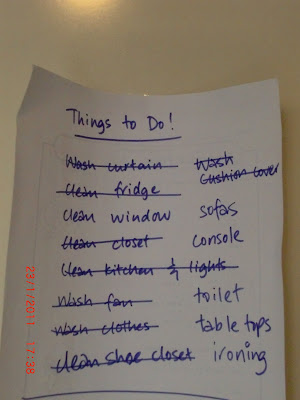 Things to Do!
Wash curtain
Clean fridge
Clean window
Clean closet
Clean kitchen & lights
Wash fan
Wash clothes
Clean shoe closet
Wash
Cushion cover
sofas
console
toilet
table tops
ironing
23/1/2011 17:38